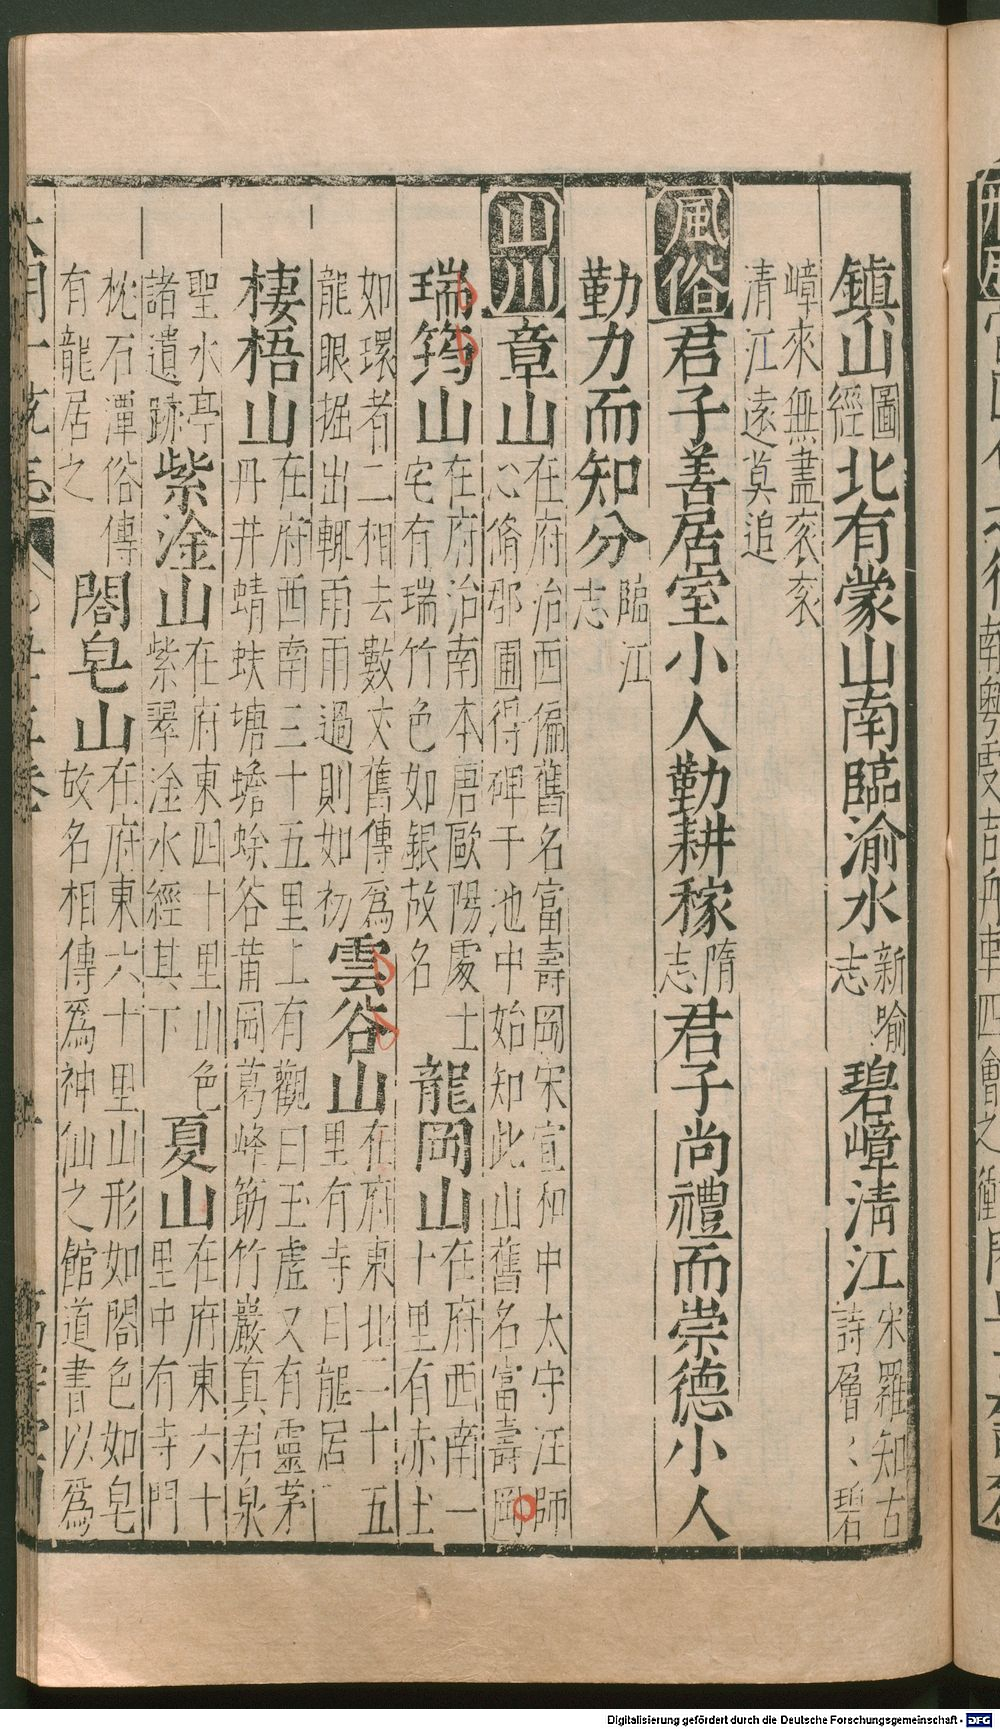 鎮山圖經北有蒙山南臨渝水新喻志碧嶂清江宋羅知古詩層〻碧
嶂來無盡衮衮
清江遠莫追
風俗君子善居室小人勤耕稼隋志君子尚禮而崇德小人
勤力而知分臨江志
山川章山在府治西偏舊名富壽岡宋宣和中太守汪師
心脩郡圃得碑于池中始知此山舊名富壽岡
瑞筠山在府治南本唐歐陽處士
宅有瑞竹色如銀故名
龍岡山在府西南一
十里有赤土
如環者二相去數丈舊傳爲
龍眼掘出輙雨雨過則如初
雲谷山在府東北二十五
里有寺曰龍居
棲梧山在府西南三十五里上有觀曰玉虛又有靈茅
丹井蜻蚨塘蟾蜍谷莆岡葛峰筯竹巖真君泉
聖水亭
諸遺跡
紫淦山在府東四十里山色
紫翠淦水經其下
夏山在府東六十
里中有寺門
枕石潭俗傳
有龍居之
閤皂山在府東六十里山形如閤色如皂
故名相傳爲神仙之館道書以爲
大明一統志
Digitalisierung gefördert durch die Deutsche Forschungsgemeinschaft - DFG